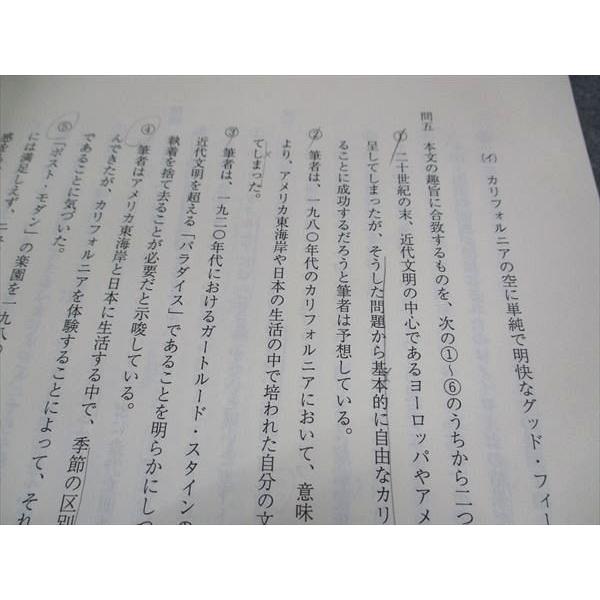 (イ) カリフォルニアの空に単純で明快なグッド・フィー
問五 本文の趣旨に合致するものを、次の①〜⑥のうちから二つ
① 二十世紀の末、近代文明の中心であるヨーロッパやアメ
呈してしまったが、そうした問題から基本的に自由なカリ
ることに成功するだろうと筆者は予想している。
② 筆者は、一九八〇年代のカリフォルニアにおいて、意味
より、アメリカ東海岸や日本の生活の中で培われた自分の文
てしまった。
③ 筆者は、一九二〇年代におけるガートルード・スタインの
近代文明を超える「パラダイス」であることを明らかにしつ
執着を捨て去ることが必要だと示唆している。
④ 筆者はアメリカ東海岸と日本に生活する中で、季節の区別
んできたが、カリフォルニアを体験することによって、それ
であることに気づいた。
⑤ 「ポスト・モダン」の楽園を一九八〇
には満足しえず、